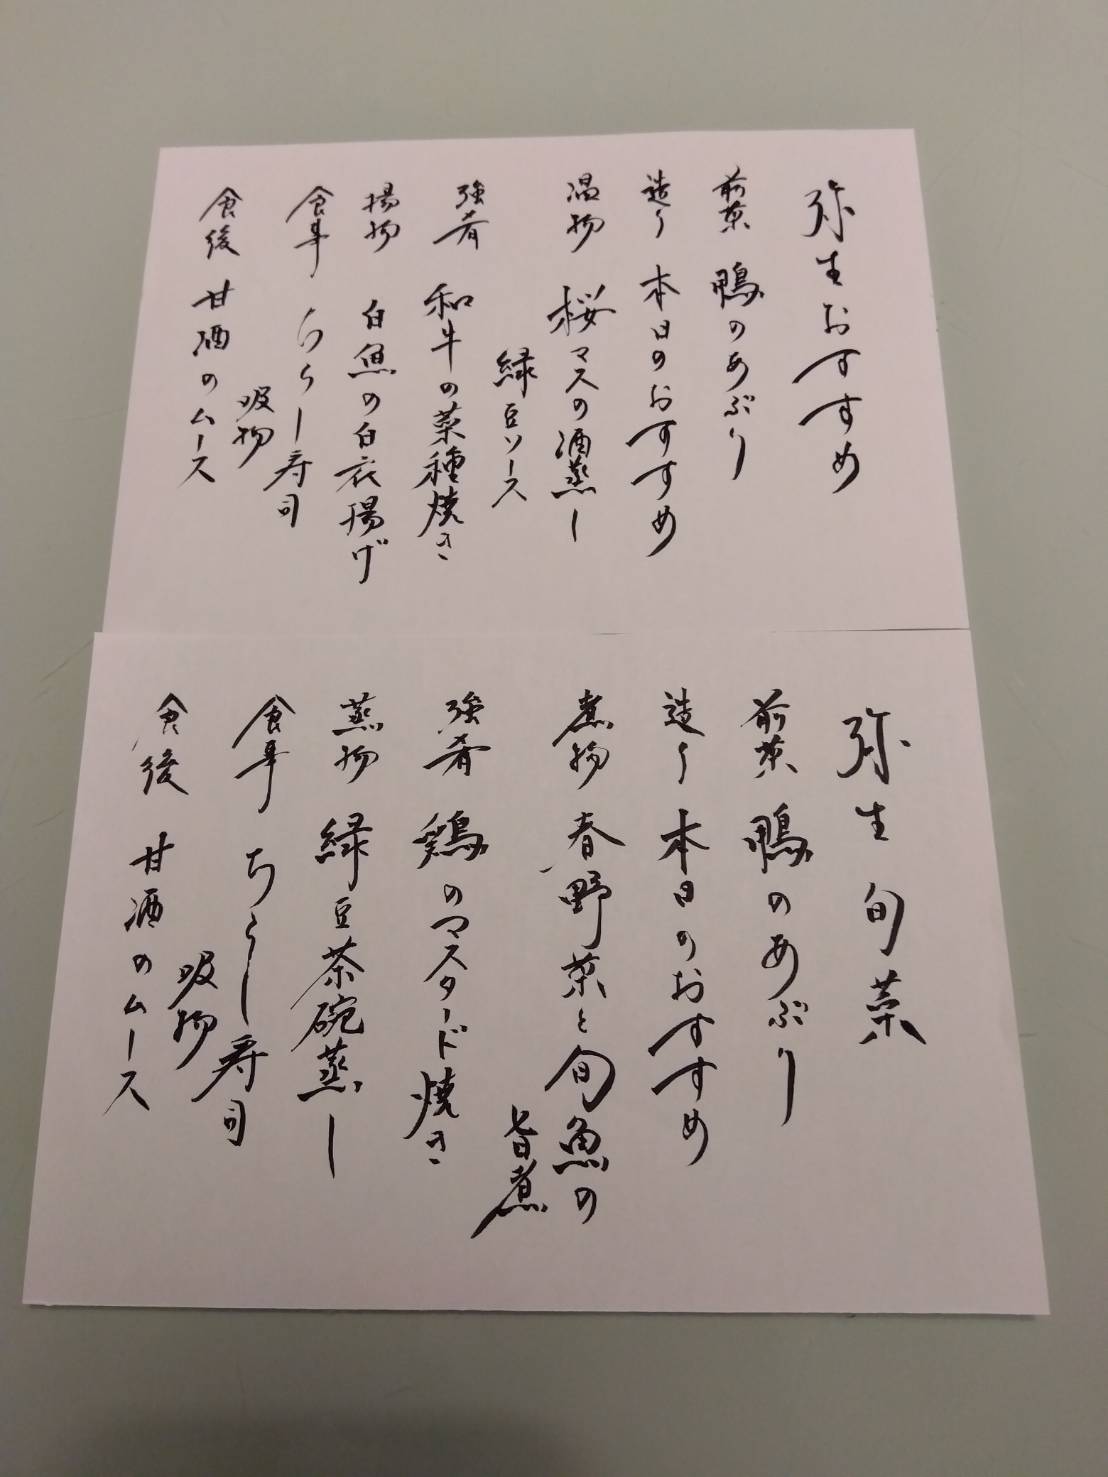 弥生おすすめ
前菜 鴨のあぶり
造り 本日のおすすめ
温物 桜マスの酒蒸し
緑豆ソース
強肴 和牛の菜種焼き
揚物 白魚の白衣揚げ
食事 ちらし寿司
吸物
食後 甘酒のムース
弥生旬菜
前菜 鴨のあぶり
造り 本日のおすすめ
煮物 春野菜と旬魚の
旨煮
強肴 鶏のマスタード焼き
蒸物 緑豆茶碗蒸し
食事 ちらし寿司
吸物
食後 甘酒のムース